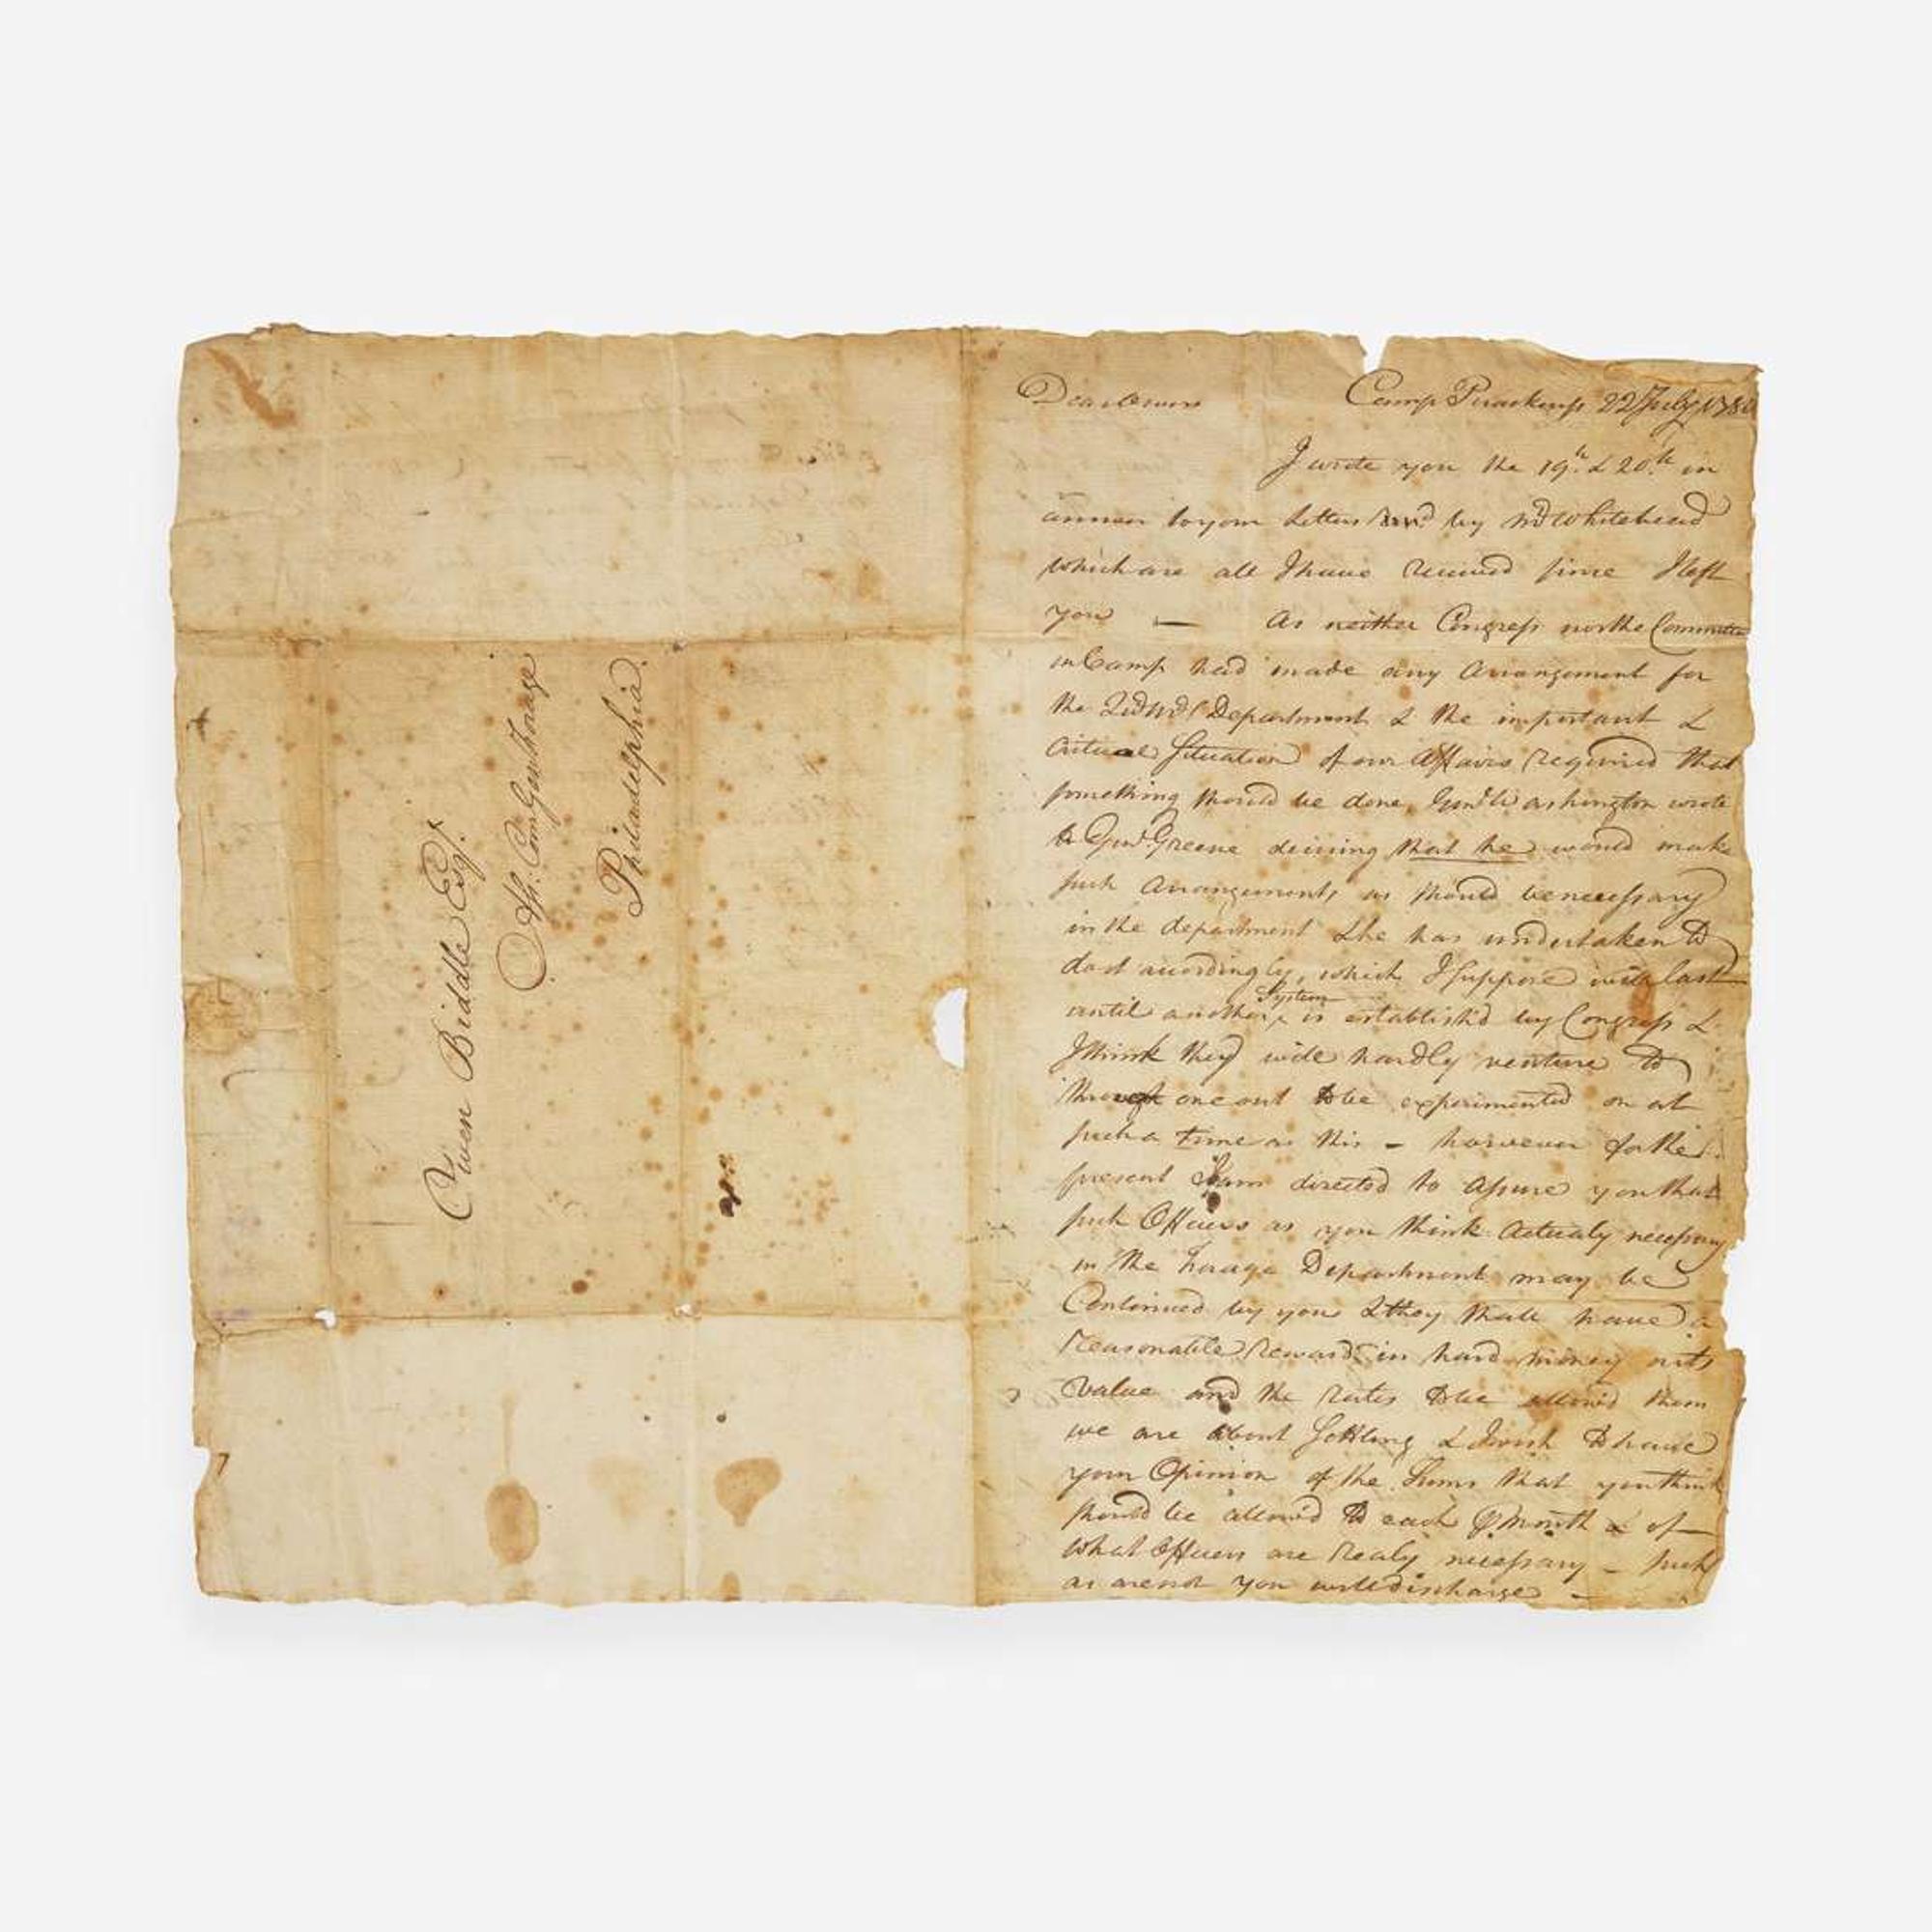 Owen Biddle Esqr.
Philadelphia
Dear Owen Camp 22 July 1780
I wrote you the 19th. & 20th. in
answer to your Letters by Mr. Whitehead
which are all I have received since I left
you — As neither Congress nor the Committee
in Camp had made any Arrangement for
the Department & the important &
Critical Situation of our Affairs required that
something should be done, Genl. Washington wrote
to Genl. Greene desiring that he would make
such Arrangements as should be necessary
in the department & he has undertaken to
do it accordingly, which I suppose will last
until another System is establish'd by Congress &
I think they will hardly venture to
one out to be experimented on at
such a time as this – however for the
present I am directed to assure you that
such Officers as you think Actualy necessary
in the Forage Department may be
Continued by you & they shall have a
reasonable reward in hard money or its
value and the rates to be allow'd them
we are about settling & I wish to have
your Opinion of the Sums that you think
should be allow'd to each ⅌ Month & of
what Officers are realy necessary – such
as are not you will discharge –